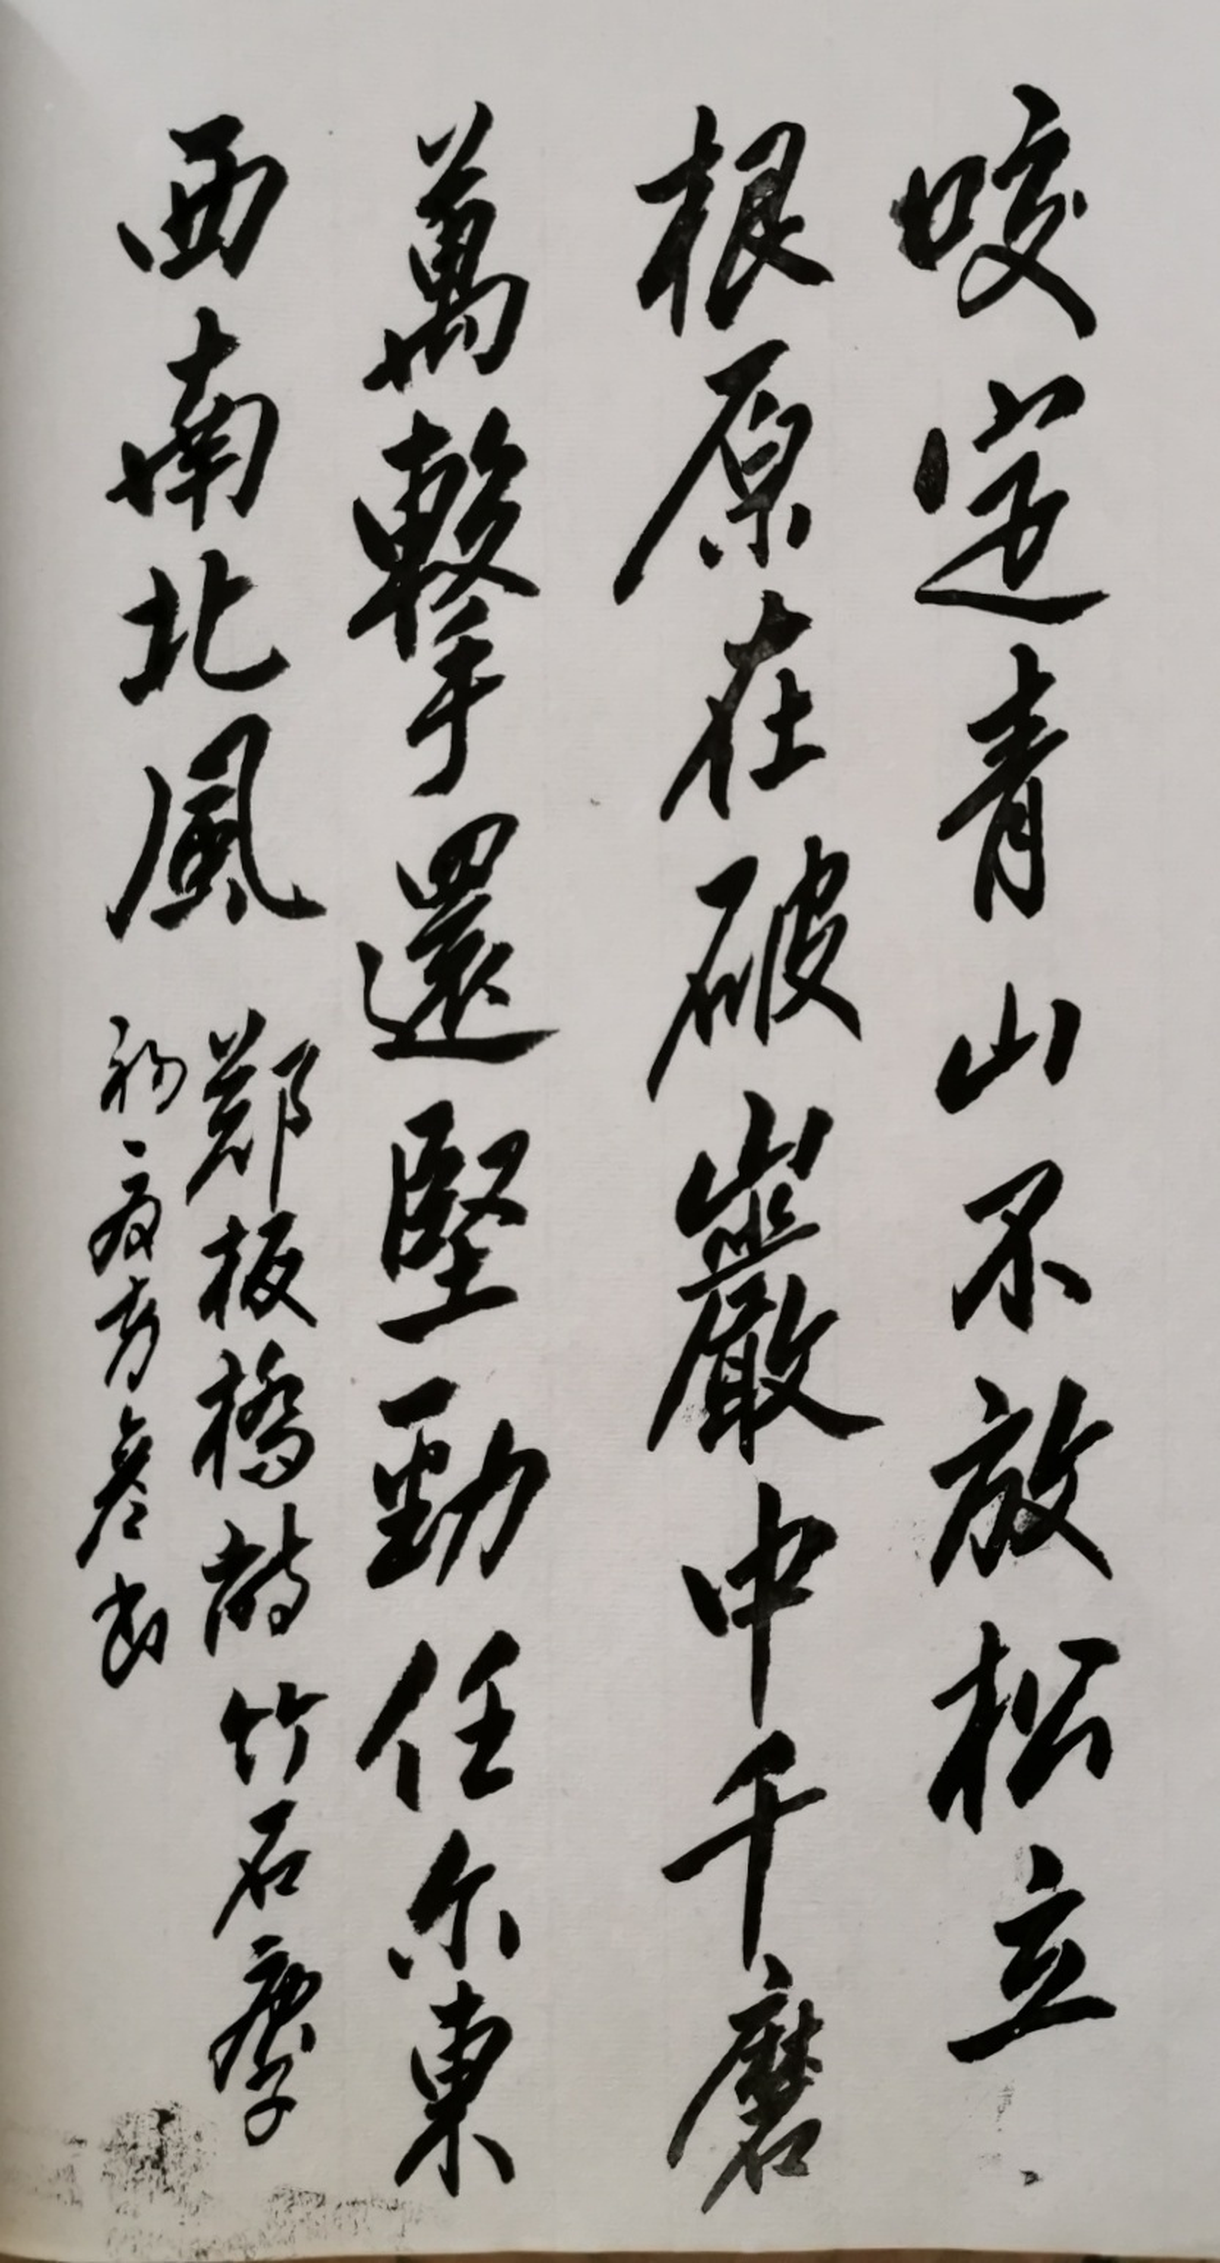 咬定青山不放松立
根原在破巖中千磨
萬擊還堅勁任尔東
西南北風
鄭板橋詩竹石庚子
初夏方彦书